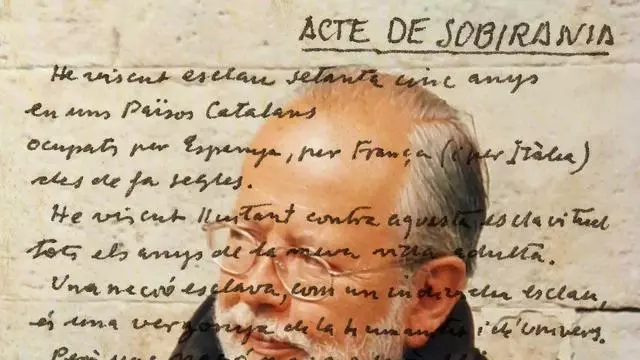 ACTE DE SOBIRANIA
He viscut esclau setanta cinc anys
en uns Països Catalans
ocupats per Espanya, per França (i per Itàlia)
des de fa segles.
He viscut lluitant contra aquesta esclavitud
tots els anys de la meva vida adulta.
Una nació esclava, com un individu esclau,
és una vergonya de la humanitat i de l'univers.
Però una nació